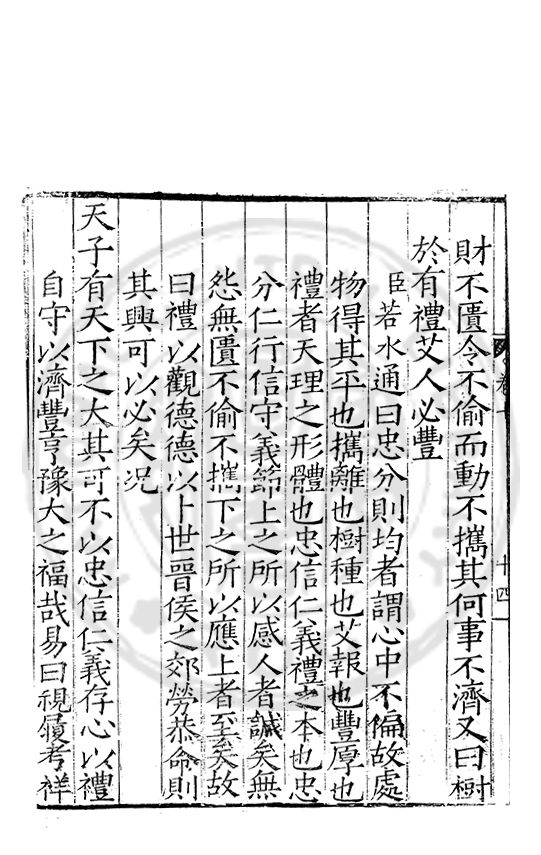 財不匱令不偷而動不攜其何事不濟又曰樹
於有禮艾人必豐
臣若水通曰忠分則均者謂心中不偏故處
物得其平也攜離也樹種也艾報也豐厚也
禮者天理之形體也忠信仁義禮之本也忠
分仁行信守義節上之所以感人者誠矣無
怨無匱不偷不攜下之所以應上者至矣故
曰禮以觀德德以卜世晉侯之郊勞恭命則
其興可以必矣况
天子有天下之大其可不以忠信仁義存心以禮
自守以濟豐亨豫大之福哉易曰視履考祥